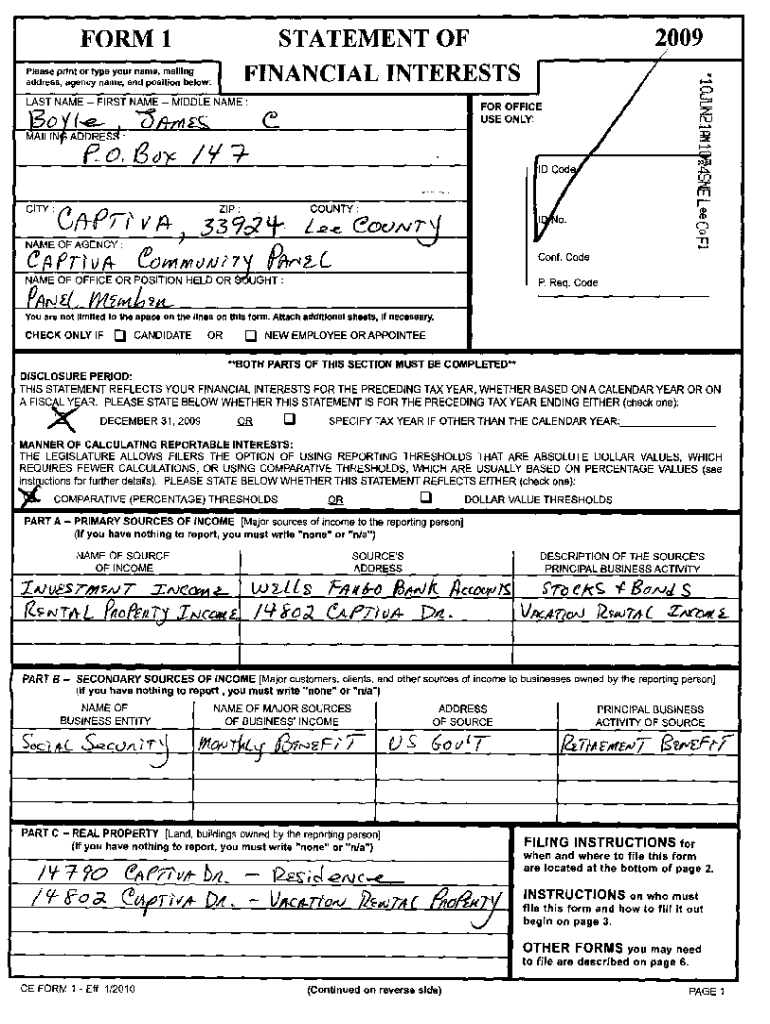 FORM 1 STATEMENT OF 2009
FINANCIAL INTERESTS
Please print or type your name, mailing
address, agency name, and position below:
LAST NAME – FIRST NAME – MIDDLE NAME :
Boyle, James C
MAILING ADDRESS :
P.O. Box 147
CITY : ZIP : COUNTY :
CAPTIVA, 33924 Lee COUNTY
NAME OF AGENCY :
CAPTIVA COMMUNITY PANEL
NAME OF OFFICE OR POSITION HELD OR SOUGHT :
PANEL MEMBER
You are not limited to the space on the lines on this form. Attach additional sheets, if necessary.
CHECK ONLY IF ☐ CANDIDATE OR ☐ NEW EMPLOYEE OR APPOINTEE
FOR OFFICE
USE ONLY:
ID Code
ID No.
Conf. Code
P. Req. Code
**BOTH PARTS OF THIS SECTION MUST BE COMPLETED**
DISCLOSURE PERIOD:
THIS STATEMENT REFLECTS YOUR FINANCIAL INTERESTS FOR THE PRECEDING TAX YEAR, WHETHER BASED ON A CALENDAR YEAR OR ON
A FISCAL YEAR. PLEASE STATE BELOW WHETHER THIS STATEMENT IS FOR THE PRECEDING TAX YEAR ENDING EITHER (check one):
X DECEMBER 31, 2009 OR ☐ SPECIFY TAX YEAR IF OTHER THAN THE CALENDAR YEAR:
MANNER OF CALCULATING REPORTABLE INTERESTS:
THE LEGISLATURE ALLOWS FILERS THE OPTION OF USING REPORTING THRESHOLDS THAT ARE ABSOLUTE DOLLAR VALUES, WHICH
REQUIRES FEWER CALCULATIONS, OR USING COMPARATIVE THRESHOLDS, WHICH ARE USUALLY BASED ON PERCENTAGE VALUES (see
instructions for further details). PLEASE STATE BELOW WHETHER THIS STATEMENT REFLECTS EITHER (check one):
X COMPARATIVE (PERCENTAGE) THRESHOLDS OR ☐ DOLLAR VALUE THRESHOLDS
PART A – PRIMARY SOURCES OF INCOME [Major sources of income to the reporting person]
(If you have nothing to report, you must write "none" or "n/a")
NAME OF SOURCE SOURCE'S DESCRIPTION OF THE SOURCE'S
OF INCOME ADDRESS PRINCIPAL BUSINESS ACTIVITY
INVESTMENT INCOME WELLS FARGO BANK ACCOUNTS STOCKS + BONDS
RENTAL PROPERTY INCOME 14802 CAPTIVA DR. VACATION RENTAL INCOME
PART B – SECONDARY SOURCES OF INCOME [Major customers, clients, and other sources of income to businesses owned by the reporting person]
(If you have nothing to report , you must write "none" or "n/a")
NAME OF NAME OF MAJOR SOURCES ADDRESS PRINCIPAL BUSINESS
BUSINESS ENTITY OF BUSINESS' INCOME OF SOURCE ACTIVITY OF SOURCE
SOCIAL SECURITY MONTHLY BENEFIT US GOV'T RETIREMENT BENEFIT
PART C – REAL PROPERTY [Land, buildings owned by the reporting person]
(If you have nothing to report, you must write "none" or "n/a")
14790 CAPTIVA DR. – Residence
14802 CAPTIVA DR. – VACATION RENTAL PROPERTY
FILING INSTRUCTIONS for
when and where to file this form
are located at the bottom of page 2.
INSTRUCTIONS on who must
file this form and how to fill it out
begin on page 3.
OTHER FORMS you may need
to file are described on page 6.
CE FORM 1 - Eff. 1/2010 (Continued on reverse side) PAGE 1